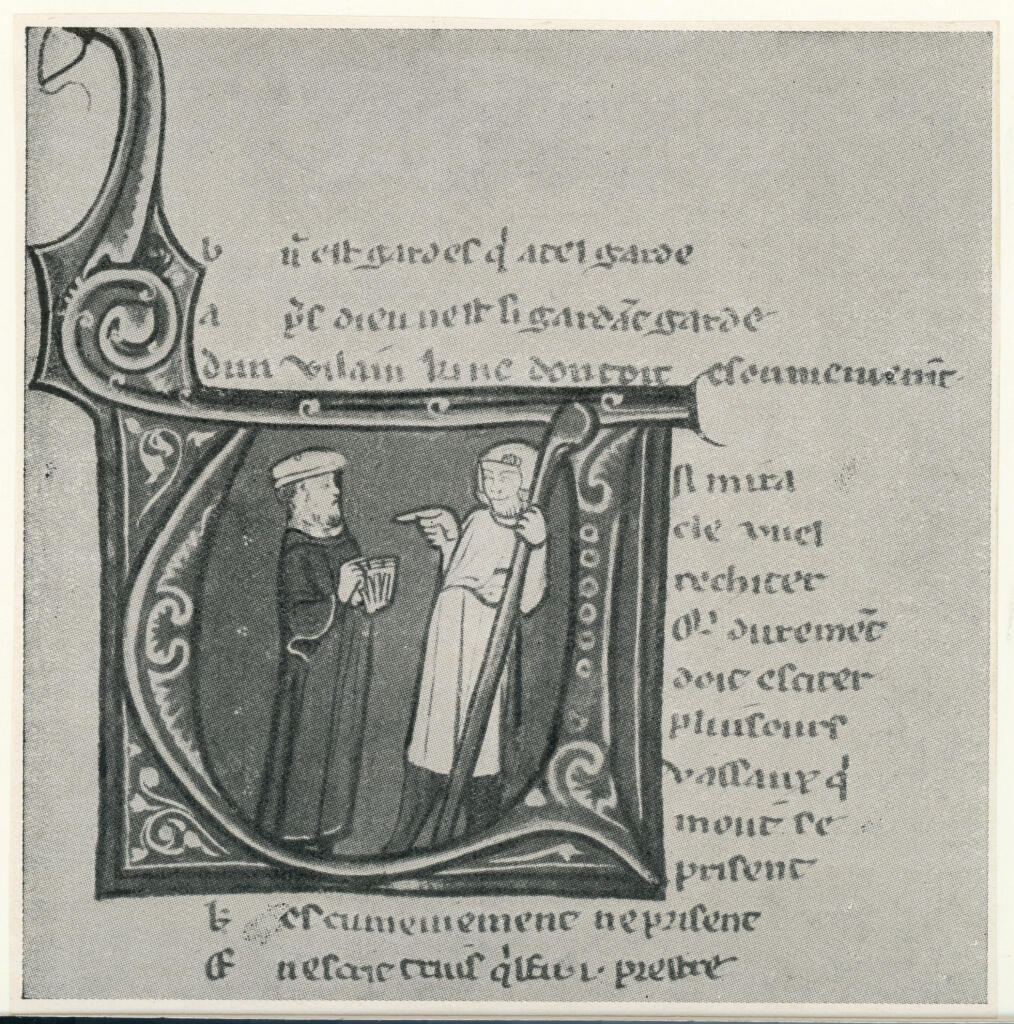 b ñ est gardes q̇ a tel garde
a p̾s dieu nest si gardãt garde
dun vilain ki ne doutoit escumeniemẽt
.I. mira
cle vuel
rechiter
q̾ duremẽt
doit esciter
pluisours
vassaux q̇
mout se
prisent
k escumeniement ne prisent
E n escrit truis q̇l fu .i. prestre